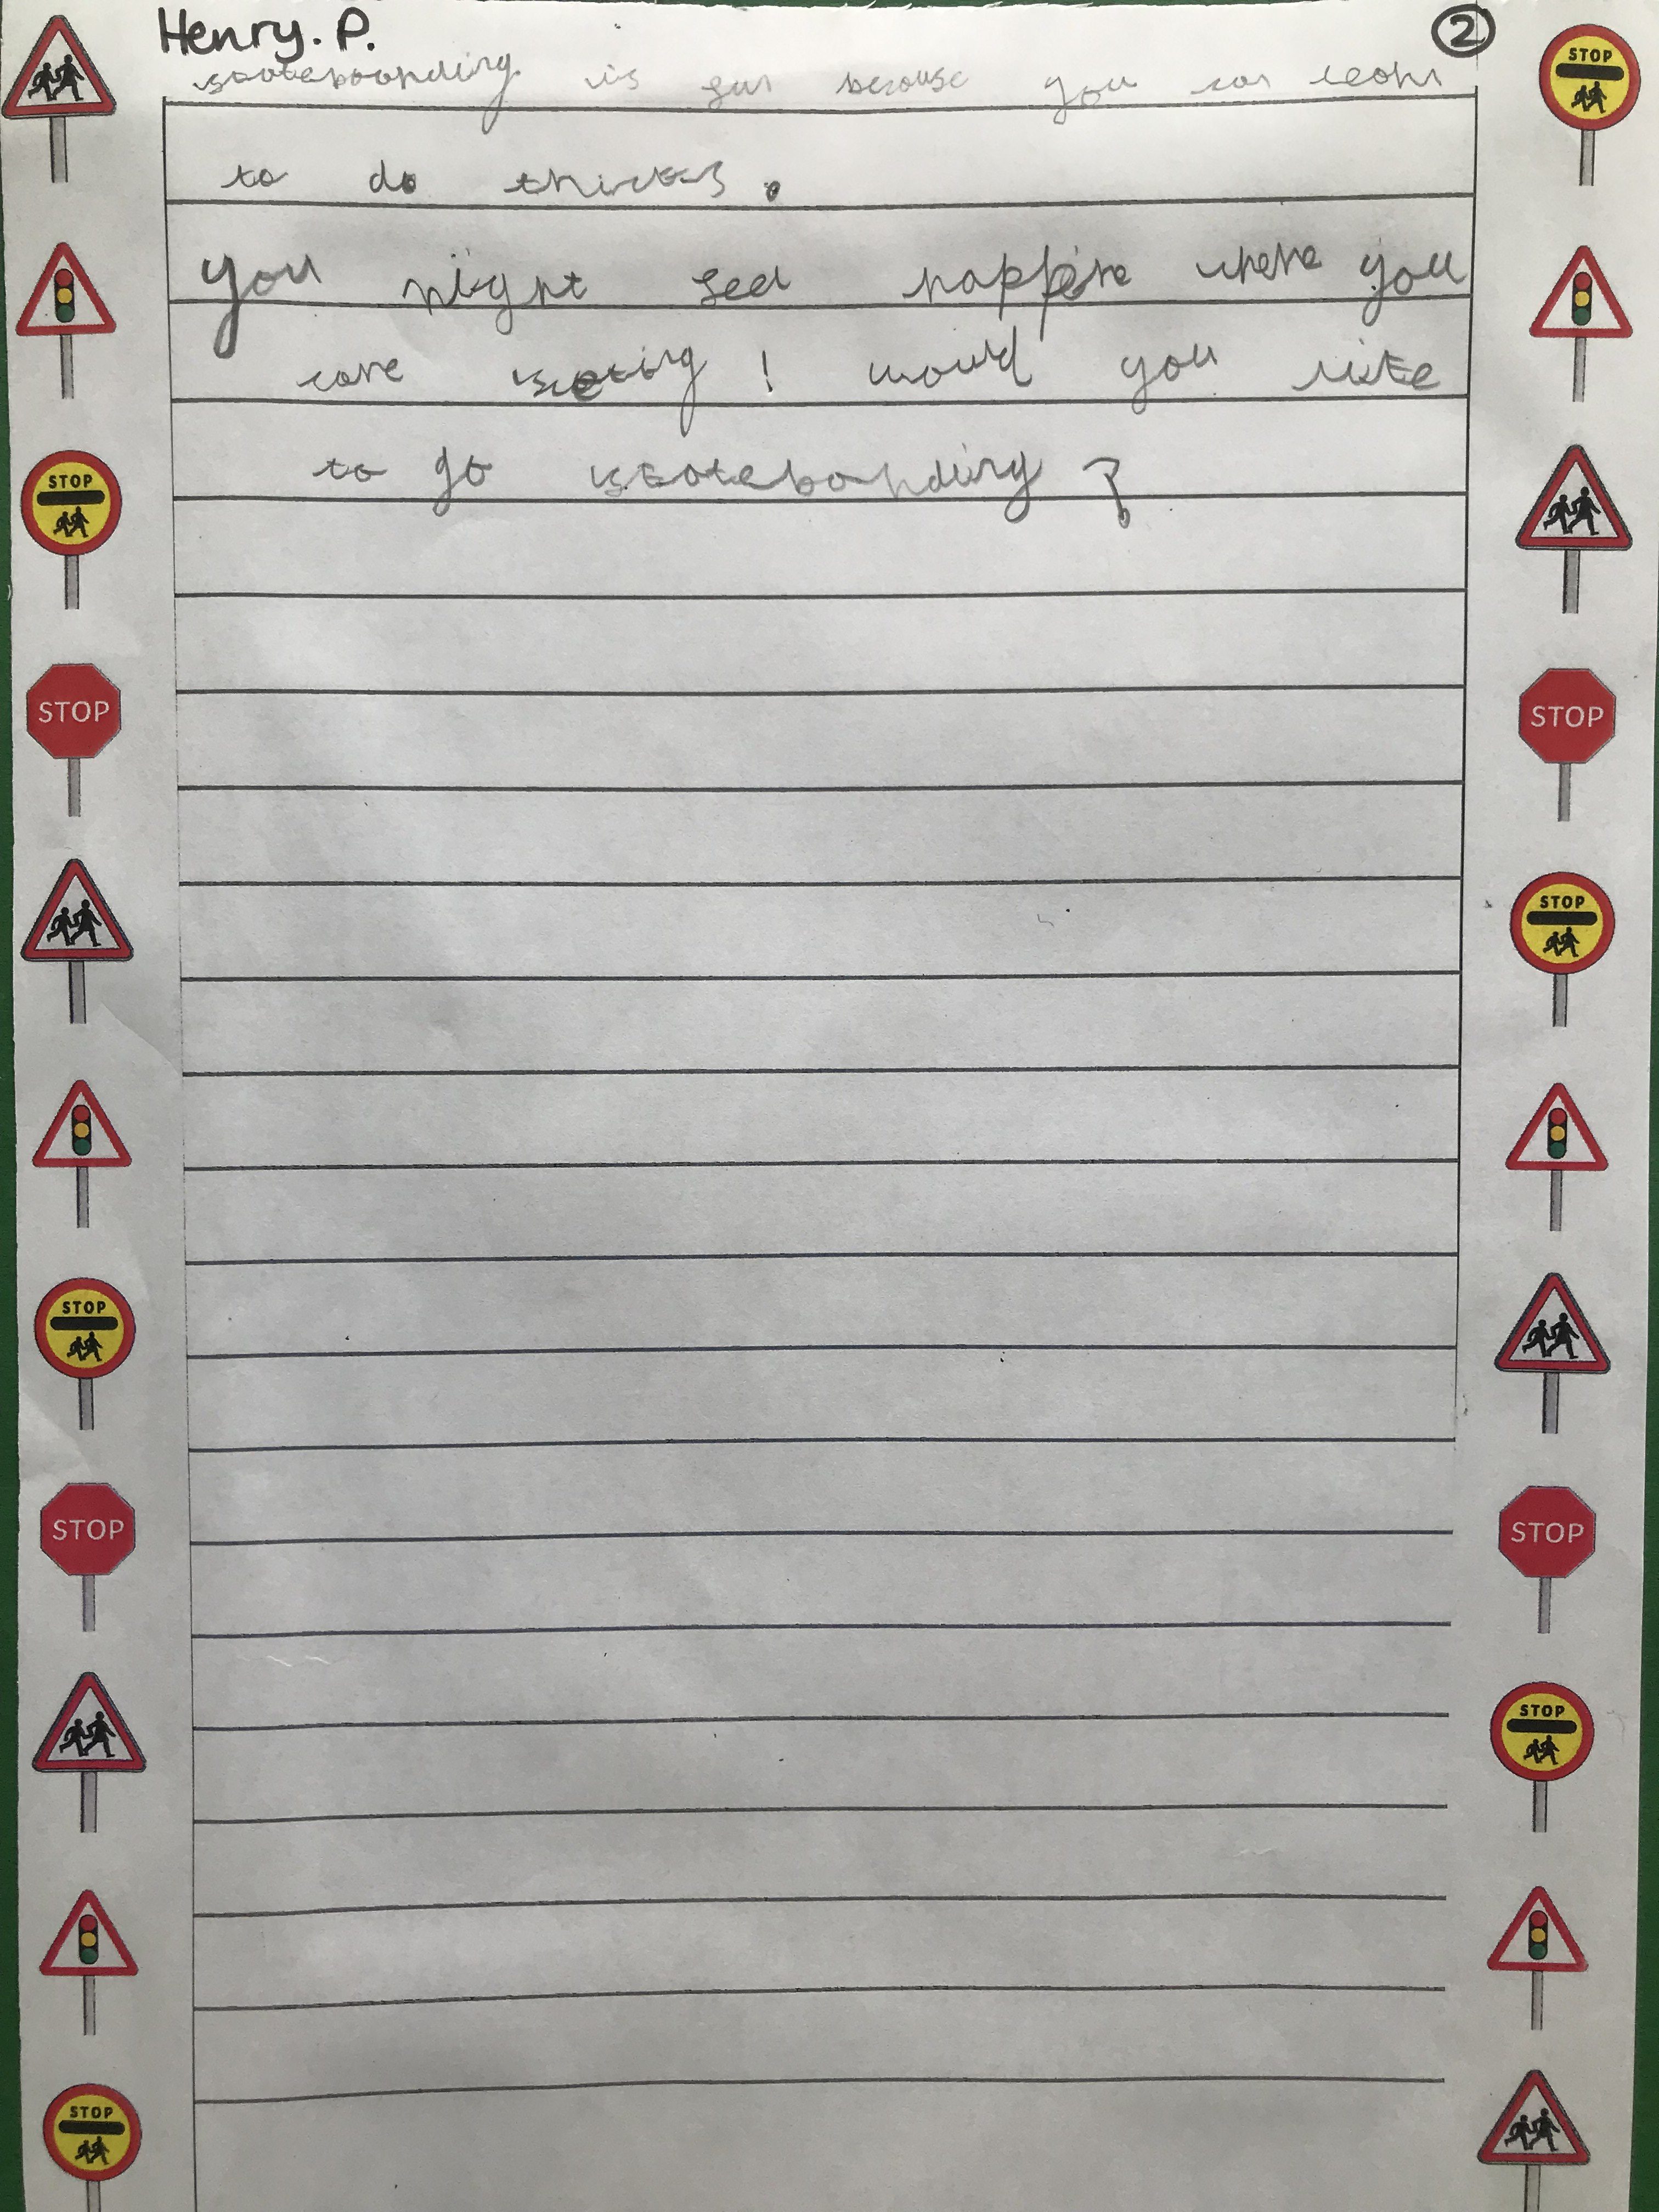 Henry. P.
②
skateboarding is fun because you can learn
to do thricks.
You might feel happire where you
are skating! would you like
to go skateboarding?
STOP
STOP
STOP
STOP
STOP
STOP
STOP
STOP
STOP
STOP